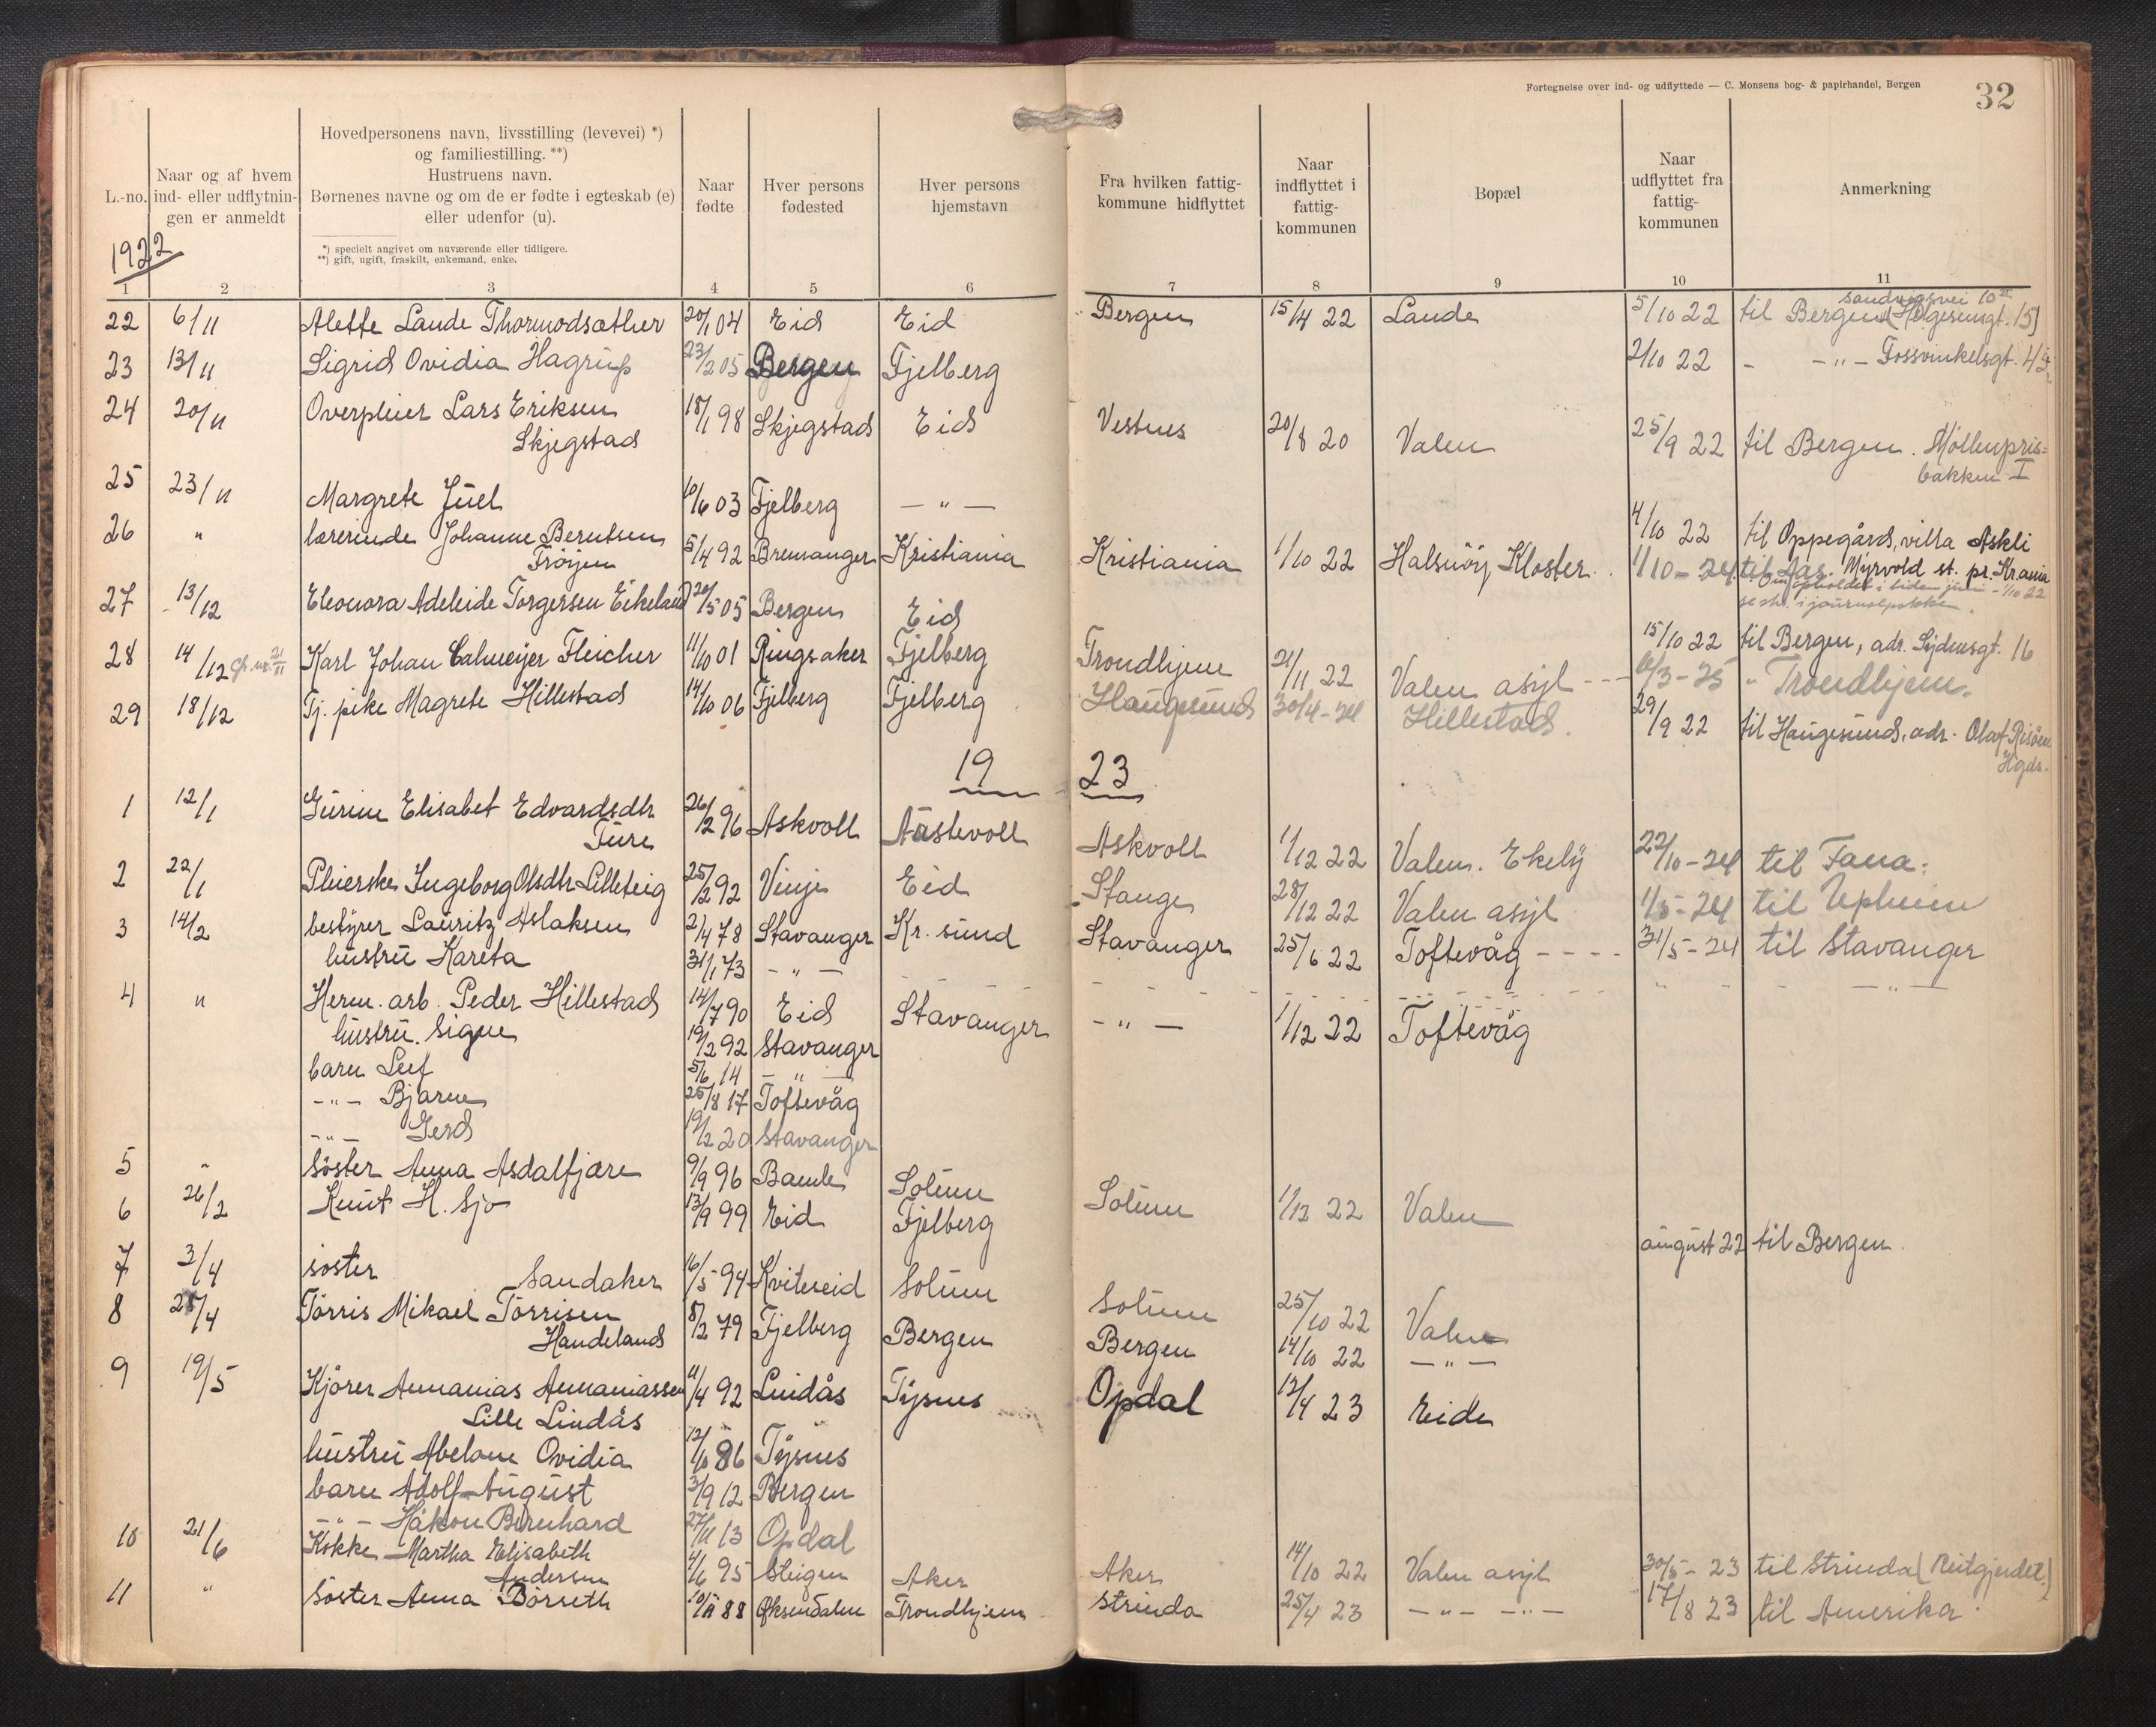 Fortegnelse over ind- og udflyttede — C. Monsens bog- & papirhandel, Bergen
32
L.-no.
Naar og af hvem ind- eller udflytnin-gen er anmeldt
Hovedpersonens navn, livsstilling (levevei) *)
og familiestilling. **)
Hustruens navn.
Børnenes navne og om de er fødte i egteskab (e)
eller udenfor (u).
*) specielt angivet om nuværende eller tidligere.
**) gift, ugift, fraskilt, enkemand, enke.
Naar fødte
Hver persons fødested
Hver persons hjemstavn
Fra hvilken fattig-kommune hidflyttet
Naar indflyttet i fattig-kommunen
Bopæl
Naar udflyttet fra fattig-kommunen
Anmerkning
1922
1 2 3 4 5 6 7 8 9 10 11
22 6/11 Alette Lande Thormodsæther 20/1 04 Eid Eid Bergen 15/4 22 Lande 5/10 22 til Bergen (Helgesensgt. 15)
Sandviksvei 10
23 13/11 Sigrid Ovidia Hagrup 23/2 05 Bergen Fjelberg 2/10 22 - -"- Fossvinkelsgt. 4
24 20/11 Overpleier Lars Eriksen 18/1 98 Skjegstad Eid Vestnes 20/8 20 Valen 25/9 22 til Bergen. Möllenpris=
Skjegstad
bakken I
25 23/11 Margrete Juel 10/6 03 Fjelberg -"- 4/10 22 til Oppegård, villa Askli
Myrvold st. pr. Kr.ania
26 " lærerinde Johanne Berntsen 5/4 92 Bremanger Kristiania Kristiania 1/10 22 Halsnöy Kloster 1/10-24 til Aas.
Tröyen
27 13/12 Eleonora Adeleide Torgersen Eikeland 20/5 05 Bergen Eid 15/10 22 til Bergen, adr. Sydnesgt. 16
28 14/12 Karl Johan Calmeyer Fleicher 11/10 01 Ringsaker Fjelberg Trondhjem 21/11 22 Valen asyl - - - /3-25 " Trondhjem.
29 18/12 Tj. pike Magrete Hillestad 14/10 06 Fjelberg Fjelberg Haugesund 30/4-24 Hillestad. 29/9 22 til Haugesund, adr. Olaf Risöen
Hgds.
1923
1 12/1 Gurine Elisabet Edvardsdtr 26/2 96 Askvoll Årstevoll Askvoll 1/12 22 Valen. Ekely 22/10-24 til Fana.
Ture
2 22/1 Pleierske Ingeborg Olsdtr Lilleteig 25/2 92 Vinje Eid Stange 28/12 22 Valen asyl 1/5-24 til Opheim
3 14/2 bestyrer Lauritz Aslaksen 2/4 78 Stavanger Kr. sund Stavanger 25/6 22 Toftevåg - - - - 31/5-24 til Stavanger
hustru Kareta 31/1 73 -"- -"-
4 " Herm. arb. Peder Hillestad 14/7 90 Eid Stavanger -"- 1/12 22 Toftevåg
hustru. Signe 19/2 92 Stavanger
barn Leif 5/6 14 -"-
-"- Bjarne 25/8 17 Toftevåg
-"- Gerd 19/2 20 Stavanger
5 " Söster Anna Asdalfjære 9/9 96 Bamle Solum Solum 1/12 22 Valen
6 26/2 Knut H. Sjo 13/9 99 Eid Fjelberg august 22 til Bergen.
7 3/4 söster Sandaker 16/5 94 Kviteseid Solum Solum 25/10 22 Valen
8 25/4 Törris Mikael Törrisen 8/2 79 Fjelberg Bergen Bergen 14/10 22 -"-
Handeland
9 19/5 Kjörer Annanias Annaniassen 11/4 92 Lindås Tysnes Opdal 12/4 23 Eide
Lille Lindås
hustru Abelone Ovidia 12/10 86 Tysnes
barn Adolf August 3/9 12 Bergen
-"- Håkon Bernhard 27/11 13 Opdal
10 21/6 Kokke Martha Elisabeth 4/6 95 Steigen Aker Aker 14/10 22 Valen asyl 30/5-23 til Strinda (Reitgjerdet.)
Andersen
11 " Söster Anna Börseth 10/11 88 Øksendalen Trondhjem Strinda 25/4 23 -"- -"- 17/8 23 til Amerika.